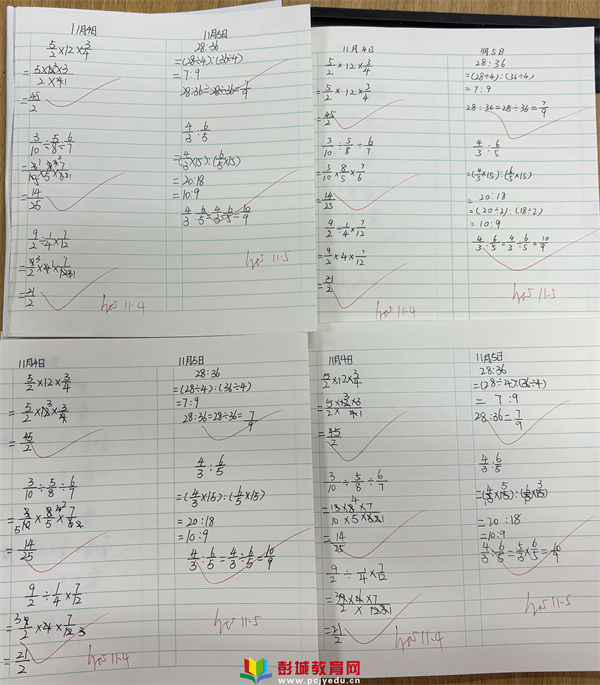 11月4日
5/2×12×3/4
=5×12×3/2×4
=45/2
3/10÷5/8÷6/7
=3×8×7/10×5×6
=14/25
9/2÷1/4×7/12
=9/2×4×7/12
=21/2
11-4
11月5日
28:36
=(28÷4):(36÷4)
=7:9
28:36=28÷36=7/9
4/3:6/5
=(4/3×15):(6/5×15)
=20:18
=10:9
11-5
11月4日
5/2×12×3/4
=5/2×12×3/4
=45/2
3/10÷5/8÷6/7
=3/10×8/5×7/6
=14/25
9/2÷1/4×7/12
=9/2×4×7/12
=21/2
11-4
月5日
28:36
=(28÷4):(36÷4)
=7:9
28:36=28÷36=7/9
4/3:6/5
=(4/3×15):(6/5×15)
=20:18
=(20÷2):(18÷2)
=10:9
4/3:6/5=4/3÷6/5=10/9
11-5
11月4日
5/2×12×3/4
=5/2×12×3/4
=45/2
3/10÷5/8÷6/7
=3/10×8/5×7/6
=14/25
9/2÷1/4×7/12
=9/2×4×7/12
=21/2
11-4
11月5日
28:36
=(28÷4):(36÷4)
=7:9
28:36=28÷36=7/9
4/3:6/5
=(4/3×15):(6/5×15)
=20:18
=10:9
4/3:6/5=4/3÷6/5=10/9
11-5
11月4日
5/2×12×3/4
=5×12×3/2×4
=45/2
3/10÷5/8÷6/7
=3×8×7/10×5×6
=14/25
9/2÷1/4×7/12
=9×4×7/2×12
=21/2
11-4
11月5日
28:36
=(28÷4):(36÷4)
=7:9
28:36=7/9
4/3:6/5
=(4/3×15):(6/5×15)
=20:18
=10:9
11-5
彭城教育网
www.pcjyedu.cn